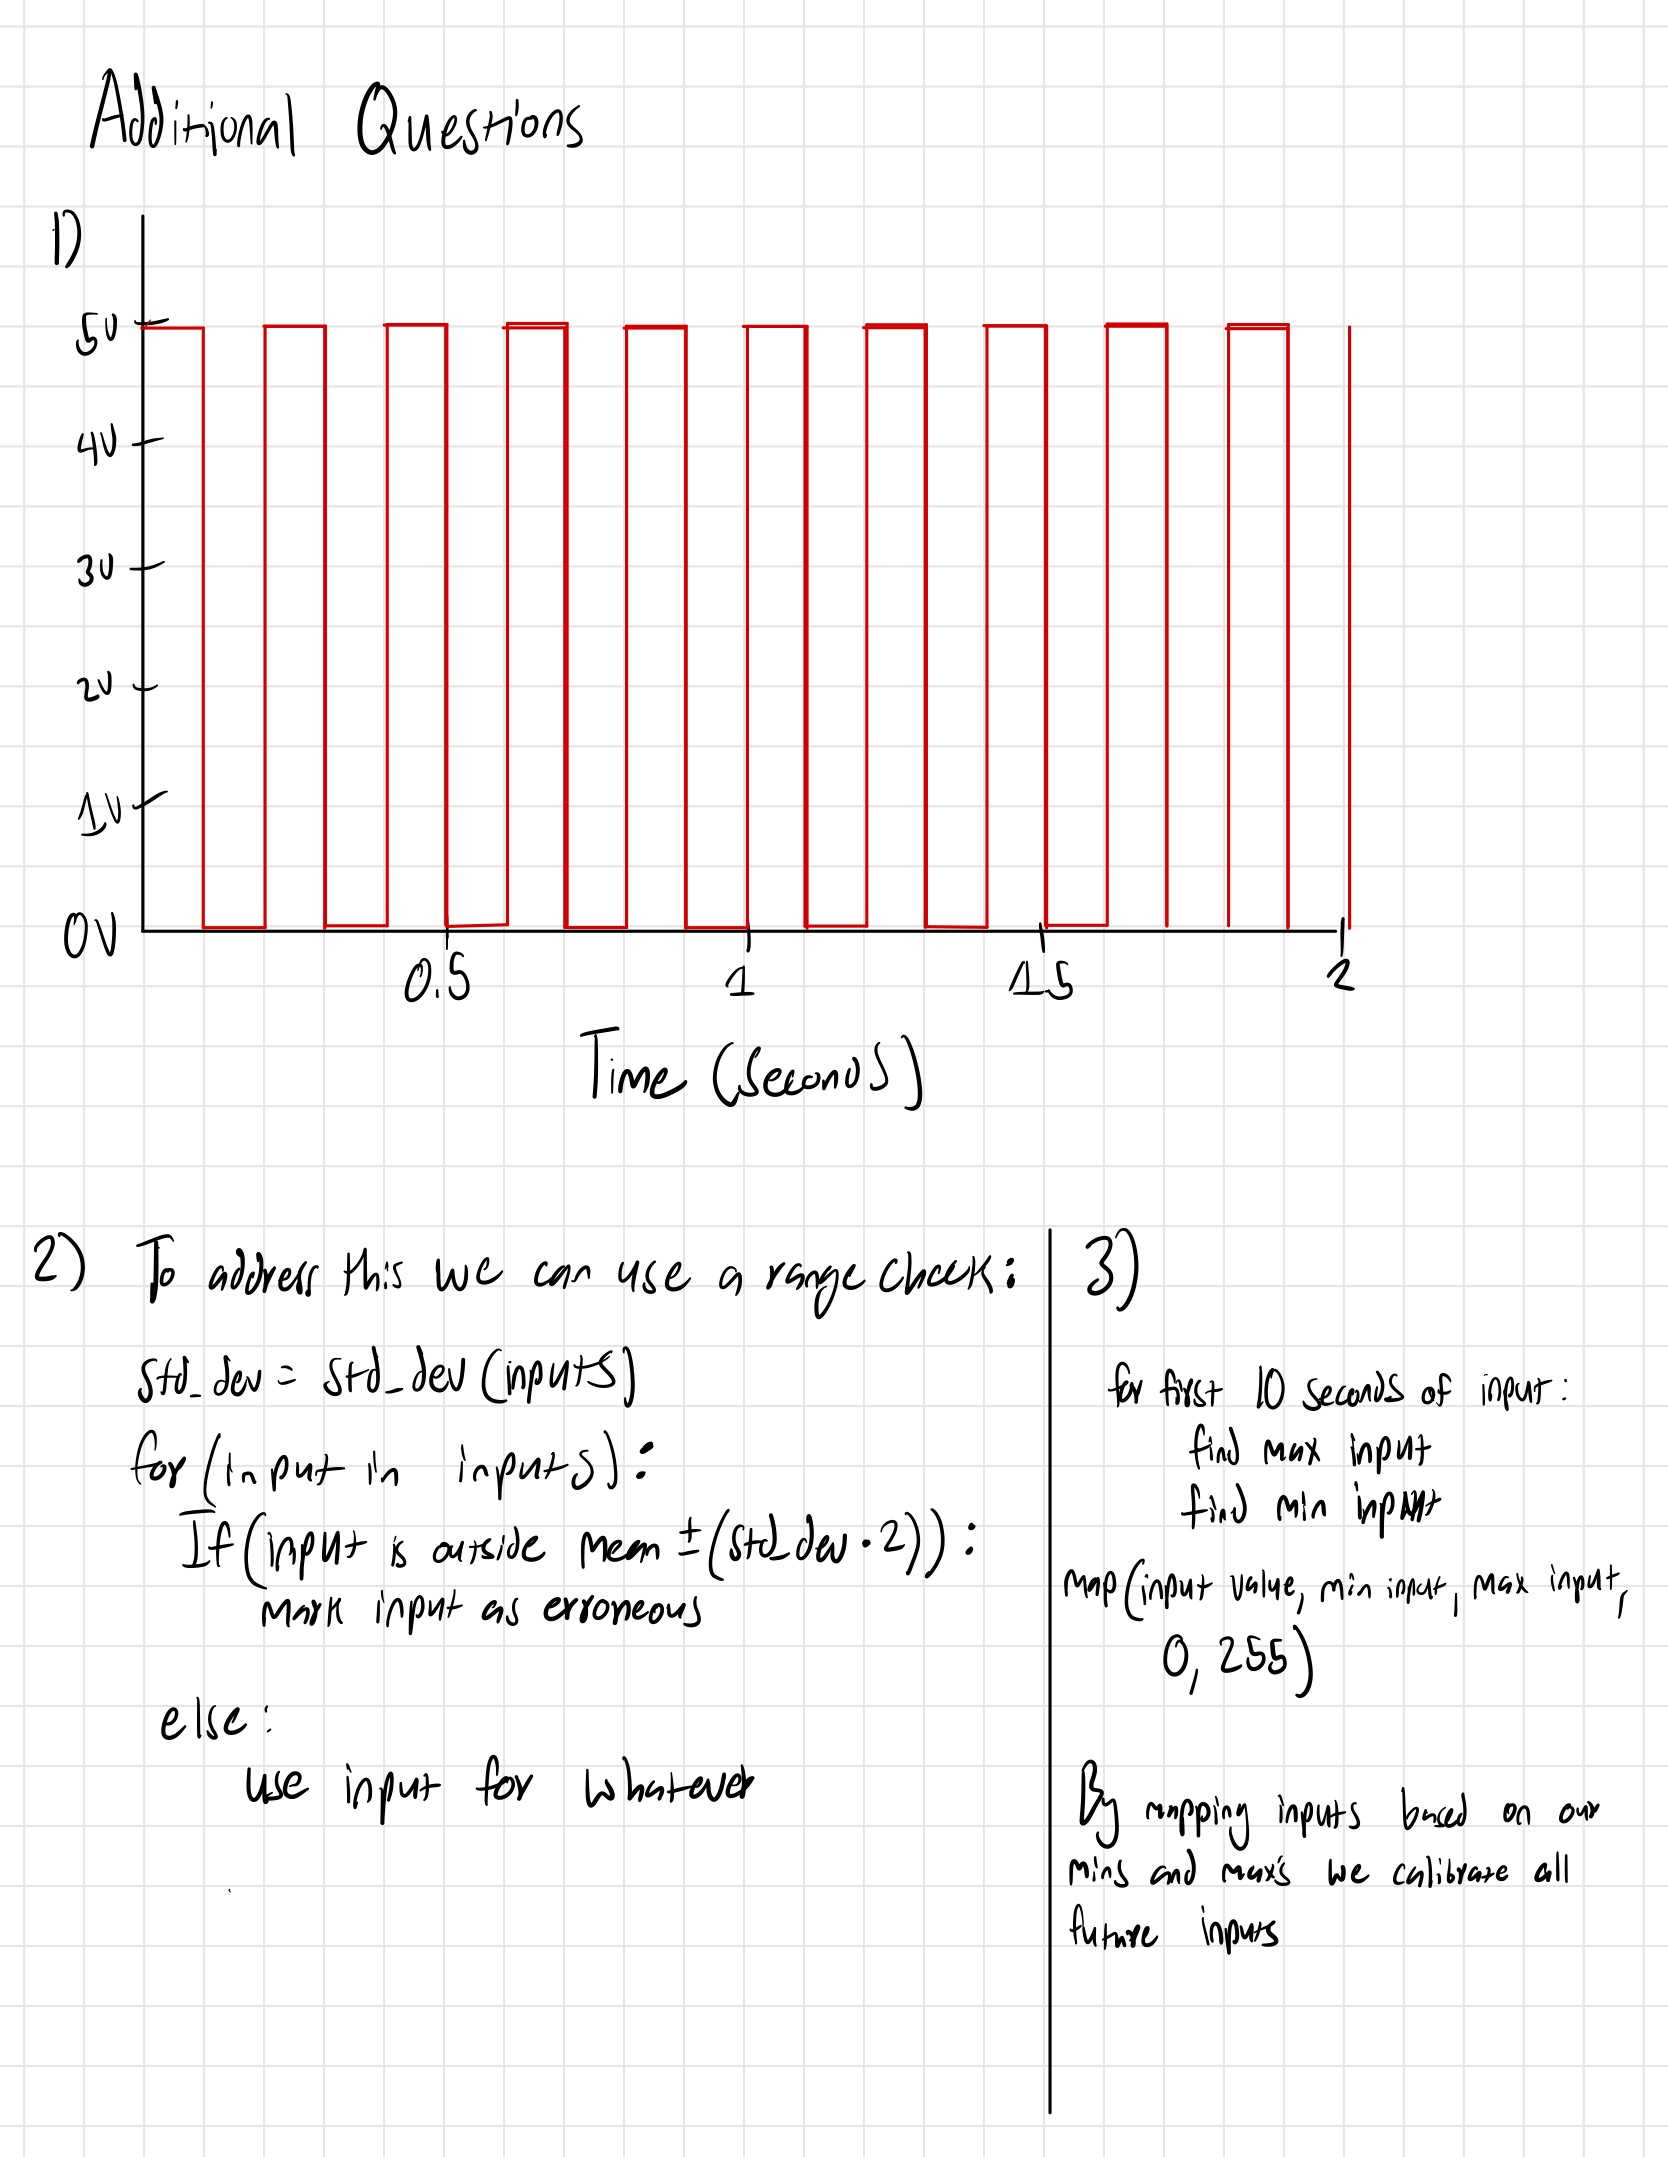 Additional Questions
1)
5V
4V
3V
2V
1V
0V
0.5 1 1.5 2
Time (Seconds)
2) To address this we can use a range check:
std_dev = std_dev (inputs)
for (input in inputs):
If (input is outside mean ± (std_dev · 2)):
mark input as erroneous
else:
use input for whatever
3)
for first 10 seconds of input:
find max input
find min input
map (input value, min input, max input,
0, 255)
By mapping inputs based on our
mins and max's we calibrate all
future inputs